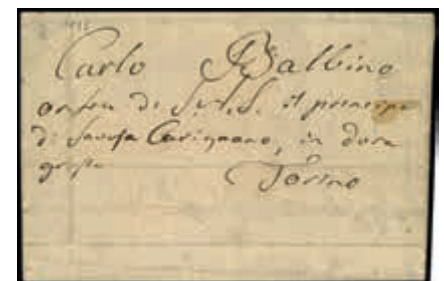 Carlo Balbino
di S.A.S. il principe
di Savoja Carignano, in dora
grossa
Torino